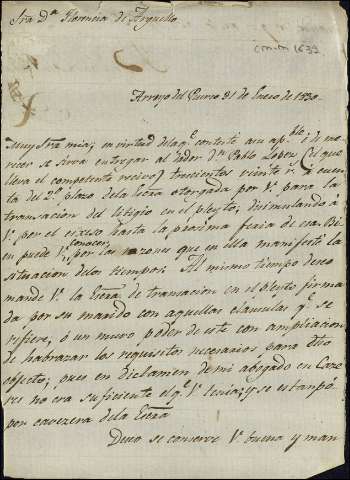 Sra Dª Florencia de Arguello
Arroyo del Puerco 31 de Enero de 1830
Muy Sra mia; en virtud de la qe contesté a su apble de
se sirva entregar al dador Dn Pablo Lopez (el que
lleva el competente recivo) trescientos veinte rs a cuen-
ta del 2º plazo de la letra otorgada por Vd para la
transacion del litigio en el pleyto, disimulando á
Vd por el exceso hasta la proxima feria de esa. Bi-
en puede Vd conocer por las razones que en ella manifesté la
situacion de los tiempos. Al mismo tiempo deseo
mande Vd la Escra de transacion en el pleyto firma-
da por su marido con aquellas clausulas qe se
refiere, ó un nuevo poder de este con ampliacion
de habrazar los requisitos necesarios para dho
objecto; pues en dictamen de mi abogado en Caze-
res no era suficiente el qe Vd tenia, y se estampó
por cavezera de la Escra
Deseo se conserve Vd buena y man